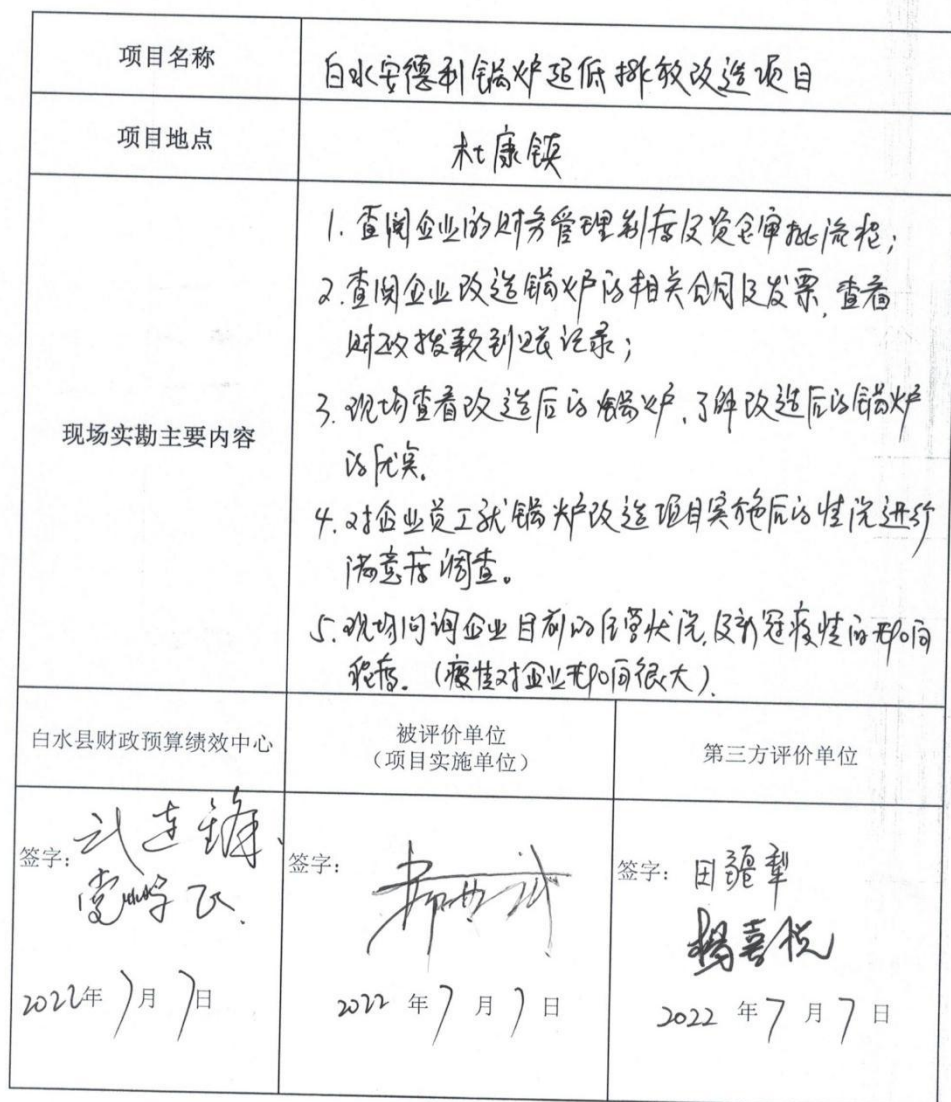 项目名称
白水安德利锅炉超低排放改造项目
项目地点
杜康镇
现场实勘主要内容
1.查阅企业的财务管理制度及资金审批流程;
2.查阅企业改造锅炉的相关合同及发票,查看
财政拨款到账记录;
3.现场查看改造后的锅炉,了解改造后的锅炉
的优点。
4.对企业员工就锅炉改造项目实施后的情况进行
满意度调查。
5.现场问询企业目前的经营状况,及新冠疫情的影响
程度。(疫情对企业影响很大)。
白水县财政预算绩效中心
被评价单位
(项目实施单位)
第三方评价单位
签字:武连锋
签字:
签字:田
杨喜悦
2022年7月7日
2022年7月7日
2022年7月7日